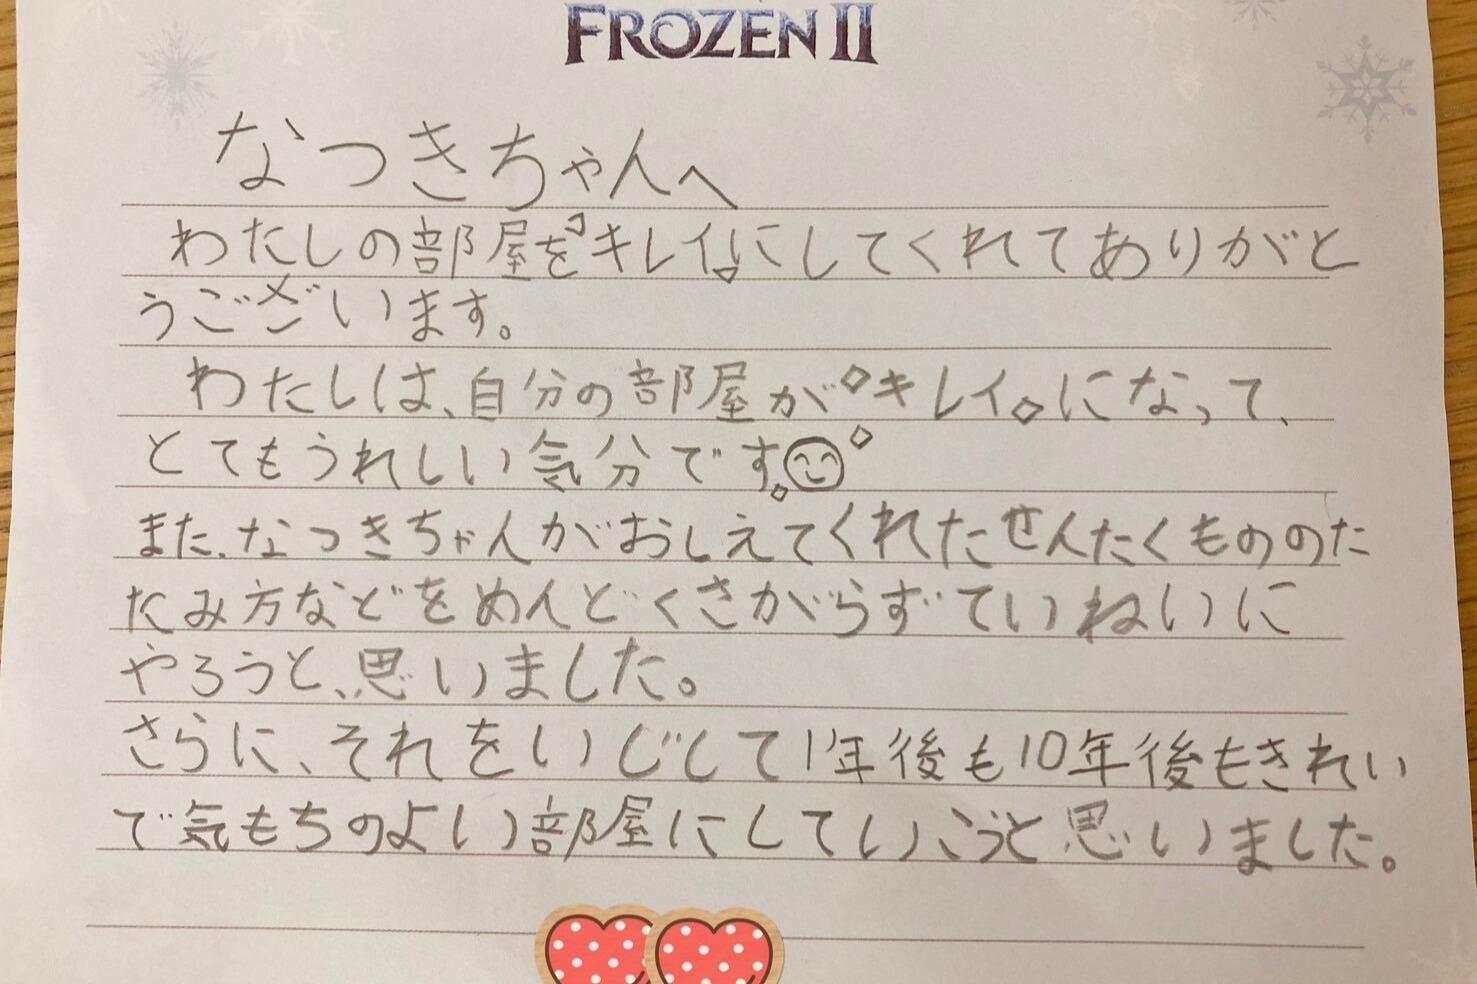 FROZEN II
なつきちゃんへ
わたしの部屋を『キレイ』にしてくれてありがと
うございます。
わたしは、自分の部屋がキレイになって、
とてもうれしい気分です
また、なつきちゃんがおしえてくれたせんたくもののた
たみ方などをめんどくさがらずていねいに
やろうと、思いました。
さらに、それをいじして1年後も10年後もきれい
で気もちのよい部屋にしていこうと思いました。